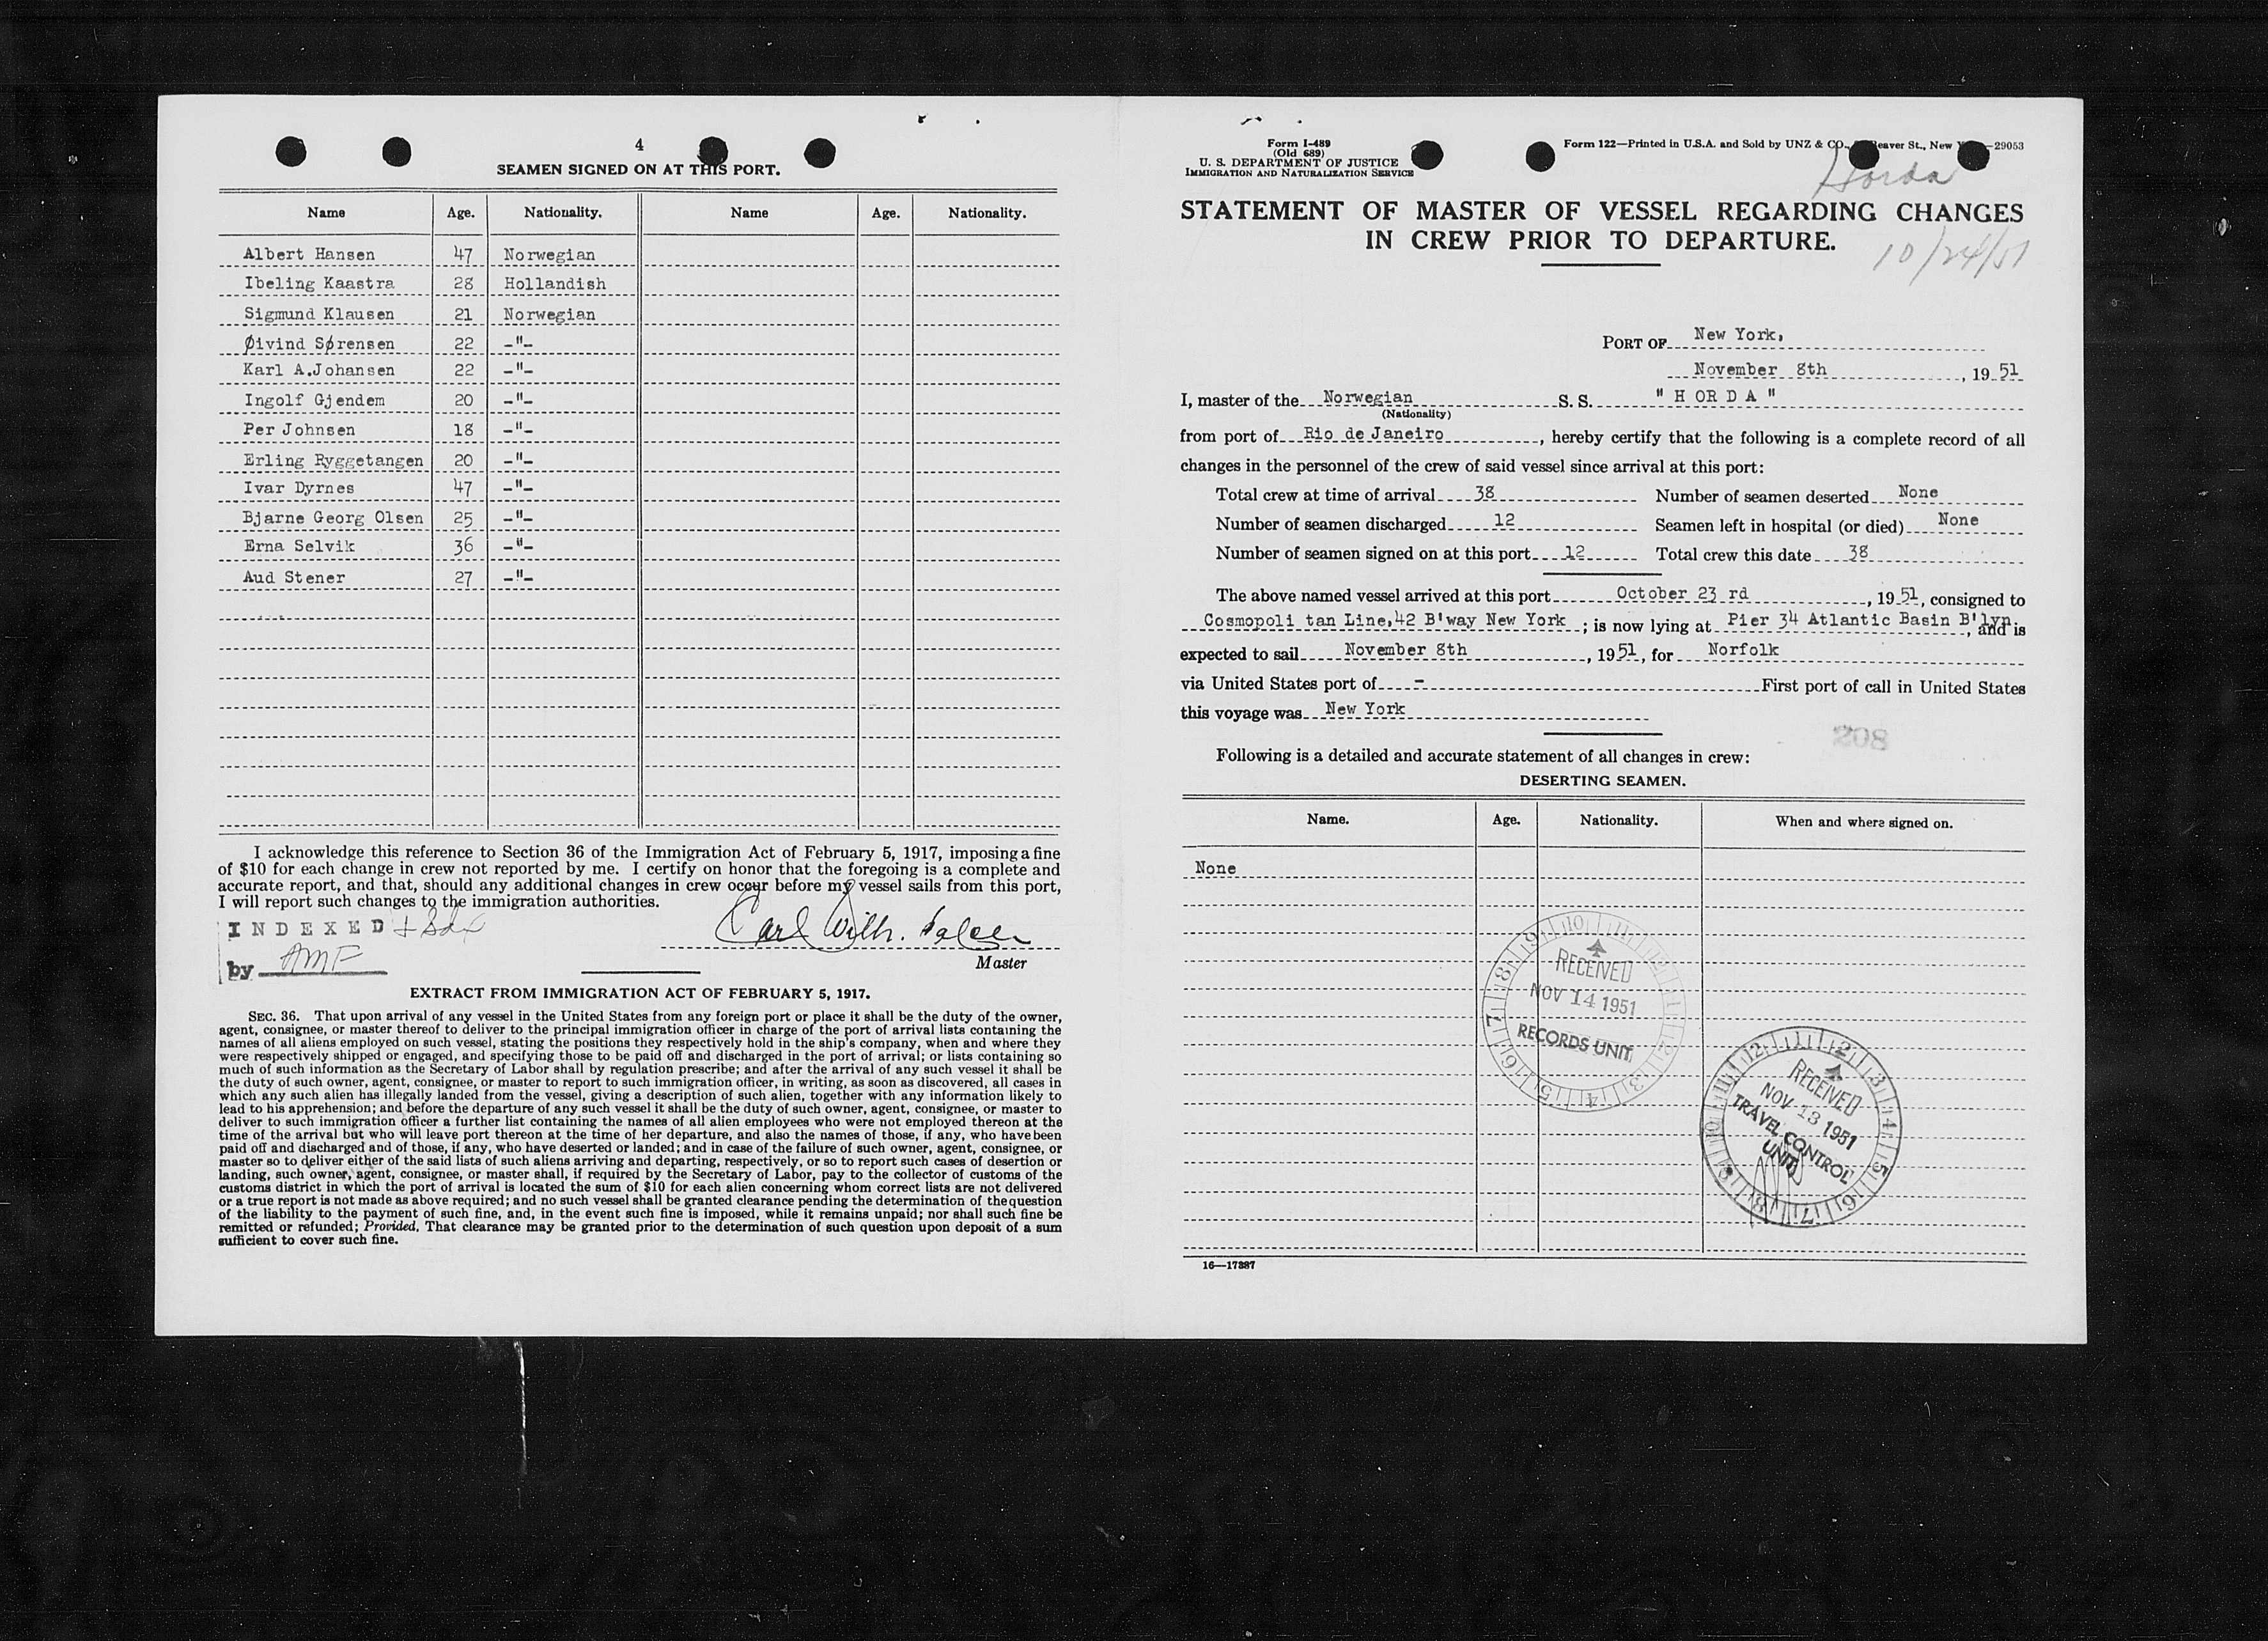 4
SEAMEN SIGNED ON AT THIS PORT.
Name Age. Nationality. Name Age. Nationality.
Albert Hansen 47 Norwegian
Ibeling Kaastra 28 Hollandish
Sigmund Klausen 21 Norwegian
Øivind Sørensen 22 -"-
Karl A.Johansen 22 -"-
Ingolf Gjendem 20 -"-
Per Johnsen 18 -"-
Erling Ryggetangen 20 -"-
Ivar Dyrnes 47 -"-
Bjarne Georg Olsen 25 -"-
Erna Selvik 36 -"-
Aud Stener 27 -"-
I acknowledge this reference to Section 36 of the Immigration Act of February 5, 1917, imposing a fine
of $10 for each change in crew not reported by me. I certify on honor that the foregoing is a complete and
accurate report, and that, should any additional changes in crew occur before my vessel sails from this port,
I will report such changes to the immigration authorities.
INDEXED
by AMF
Carl Wilh.
Master
EXTRACT FROM IMMIGRATION ACT OF FEBRUARY 5, 1917.
SEC. 36. That upon arrival of any vessel in the United States from any foreign port or place it shall be the duty of the owner,
agent, consignee, or master thereof to deliver to the principal immigration officer in charge of the port of arrival lists containing the
names of all aliens employed on such vessel, stating the positions they respectively hold in the ship's company, when and where they
were respectively shipped or engaged, and specifying those to be paid off and discharged in the port of arrival; or lists containing so
much of such information as the Secretary of Labor shall by regulation prescribe; and after the arrival of any such vessel it shall be
the duty of such owner, agent, consignee, or master to report to such immigration officer, in writing, as soon as discovered, all cases in
which any such alien has illegally landed from the vessel, giving a description of such alien, together with any information likely to
lead to his apprehension; and before the departure of any such vessel it shall be the duty of such owner, agent, consignee, or master to
deliver to such immigration officer a further list containing the names of all alien employees who were not employed thereon at the
time of the arrival but who will leave port thereon at the time of her departure, and also the names of those, if any, who have been
paid off and discharged and of those, if any, who have deserted or landed; and in case of the failure of such owner, agent, consignee, or
master so to deliver either of the said lists of such aliens arriving and departing, respectively, or so to report such cases of desertion or
landing, such owner, agent, consignee, or master shall, if required by the Secretary of Labor, pay to the collector of customs of the
customs district in which the port of arrival is located the sum of $10 for each alien concerning whom correct lists are not delivered
or a true report is not made as above required; and no such vessel shall be granted clearance pending the determination of the question
of the liability to the payment of such fine, and, in the event such fine is imposed, while it remains unpaid; nor shall such fine be
remitted or refunded; Provided, That clearance may be granted prior to the determination of such question upon deposit of a sum
sufficient to cover such fine.
Form I-489
(Old 689)
U. S. DEPARTMENT OF JUSTICE
IMMIGRATION AND NATURALIZATION SERVICE
Form 122—Printed in U.S.A. and Sold by UNZ & CO., Beaver St., New —29053
Horda
STATEMENT OF MASTER OF VESSEL REGARDING CHANGES
IN CREW PRIOR TO DEPARTURE.
10/24/51
PORT OF New York,
November 8th, 1951
I, master of the Norwegian S. S. "HORDA"
(Nationality)
from port of Rio de Janeiro, hereby certify that the following is a complete record of all
changes in the personnel of the crew of said vessel since arrival at this port:
Total crew at time of arrival 38 Number of seamen deserted None
Number of seamen discharged 12 Seamen left in hospital (or died) None
Number of seamen signed on at this port 12 Total crew this date 38
The above named vessel arrived at this port October 23 rd, 1951, consigned to
Cosmopoli tan Line,42 B'way New York; is now lying at Pier 34 Atlantic Basin B'lyn, and is
expected to sail November 8th, 1951, for Norfolk
via United States port of - First port of call in United States
this voyage was New York
208
Following is a detailed and accurate statement of all changes in crew:
DESERTING SEAMEN.
Name. Age. Nationality. When and where signed on.
None
RECEIVED
NOV 14 1951
RECORDS UNIT
RECEIVED
NOV 13 1951
TRAVEL CONTROL
UNIT
16—17887